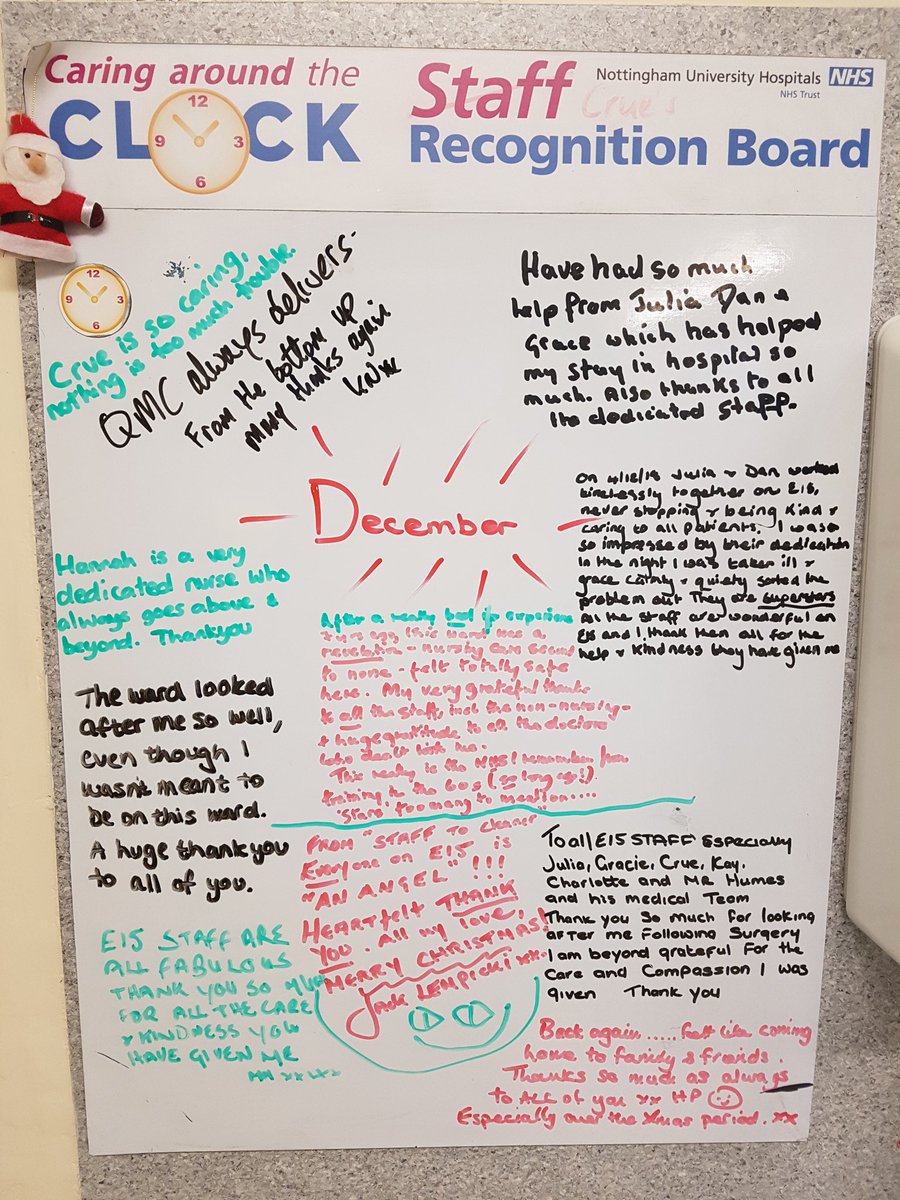 Caring around the
CLOCK
12
9 3
6
Staff Crue's
Recognition Board
Nottingham University Hospitals NHS
NHS Trust
12
9 3
6
Crue is so caring,
nothing is too much trouble.
QMC always delivers-
From the bottom up
many thanks again
Have had so much
help from Julia Dan &
Grace which has helped
my stay in hospital so
much. Also thanks to all
the dedicated staff.
December
On 4/12/19 Julia & Dan worked
tirelessly together on E15,
never stopping & being kind &
caring to all patients. I was
so impressed by their dedication
In the night I was taken ill &
grace calmly & quietly sorted the
problem out They are superstars
All the staff are wonderful on
E15 and I thank them all for the
help & kindness they have given me
Hannah is a very
dedicated nurse who
always goes above &
beyond. Thankyou
After a really bad experience
this ward was a
revelation - nursing care second
to none - felt totally safe
here. My very grateful thanks
to all the staff, incl the non-nursing-
& huge gratitude to all the doctors
who dealt with me.
This really is the NHS I remember from
training in the 60s (so long ago!).
Stars too many to mention....
The ward looked
after me so well,
even though I
wasn't meant to
be on this ward.
A huge thankyou
to all of you.
FROM "STAFF TO Cleaner"
Everyone on E15 is
"AN ANGEL" !!!
HEARTFELT THANK
YOU. All my love,
MERRY CHRISTMAS!
Jack LEMPICKI xx
To all E15 STAFF Especially
Julia, Gracie, Crue, Kay,
Charlotte and MR Humes
and his medical Team
Thank you so much for looking
after me following Surgery
I am beyond grateful for the
Care and Compassion I was
given Thank you
E15 STAFF ARE
ALL FABULOUS
THANK YOU SO MUCH
FOR ALL THE CARE
& KINDNESS YOU
HAVE GIVEN ME
MM xx xx
Back again..... felt like coming
home to family & friends.
Thanks so much as always
to ALL of you xx HP
Especially over the Xmas period. xx